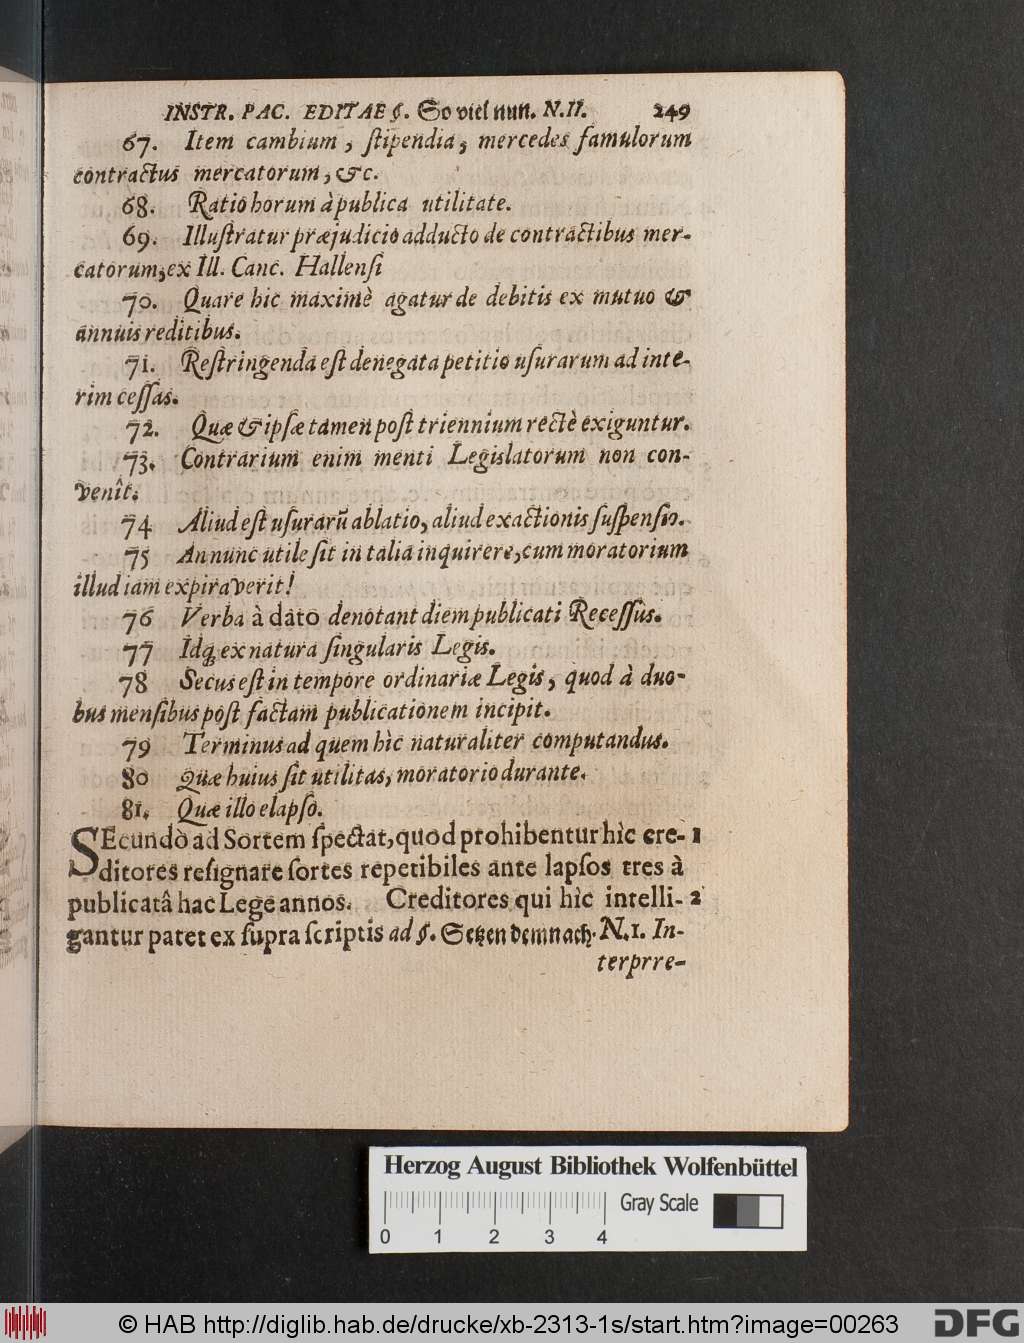 INSTR. PAC. EDITAE §. So viel nun. N.II. 249
67. Item cambium, ſtipendia, mercedes famulorum
contractus mercatorum, &c.
68. Ratio horum à publica utilitate.
69. Illuſtratur præjudicio adducto de contractibus mer-
catorum, ex Ill. Canc. Hallenſi
70. Quare hic maximè agatur de debitis ex mutuo &
annuis reditibus.
71. Reſtringenda eſt denegata petitio uſurarum ad inte-
rim ceſſas.
72. Quæ & ipſæ tamen poſt triennium rectè exiguntur.
73. Contrarium enim menti Legislatorum non con-
venît.
74 Aliud eſt uſurarũ ablatio, aliud exactionis ſuſpenſio.
75 An nunc utile ſit in talia inquirere, cum moratorium
illud iam expiraverit!
76 Verba à dato denotant diem publicati Receſſus.
77 Idq; ex natura ſingularis Legis.
78 Secus eſt in tempore ordinariæ Legis, quod à duo-
bus menſibus poſt factam publicationem incipit.
79 Terminus ad quem hìc naturaliter computandus.
80 Quæ huius ſit utilitas, moratorio durante.
81. Quæ illo elapſo.
SEcundò ad Sortem ſpectat, quod prohibentur hìc cre- 1
ditores reſignare ſortes repetibiles ante lapſos tres à
publicatâ hac Lege annos. Creditores qui hìc intelli- 2
gantur patet ex ſupra ſcriptis ad §. Setzen demnach. N.1. In-
terprre-
Herzog August Bibliothek Wolfenbüttel
Gray Scale
0 1 2 3 4
© HAB http://diglib.hab.de/drucke/xb-2313-1s/start.htm?image=00263
DFG